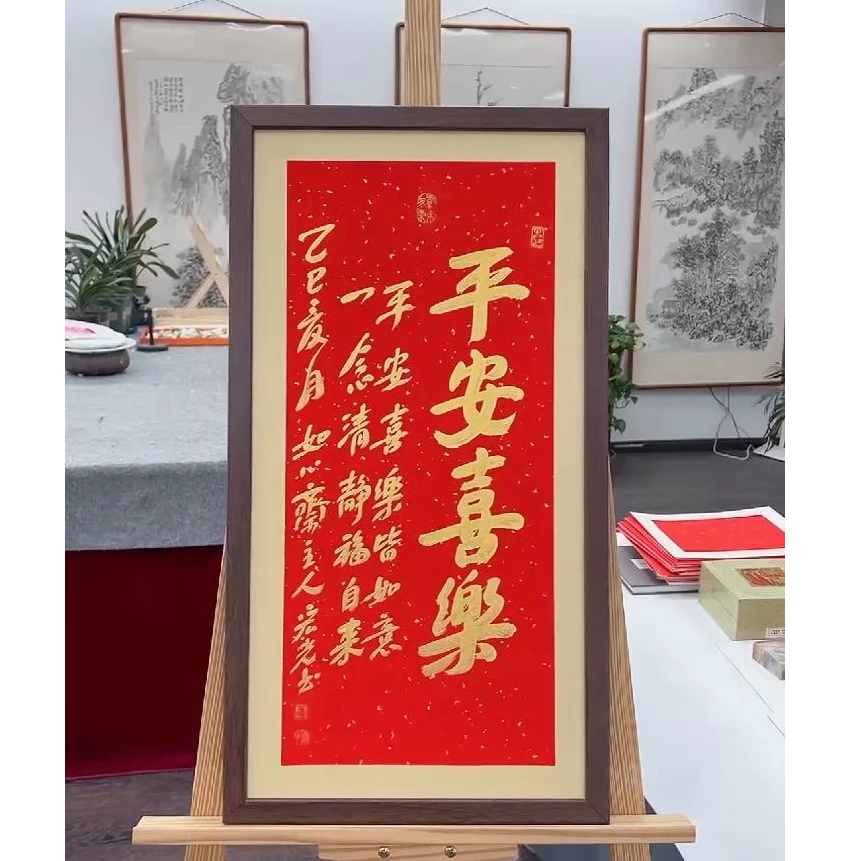 平安喜樂
平安喜樂皆如意
一念清静福自来
乙巳夏月如心齋主人宏光书